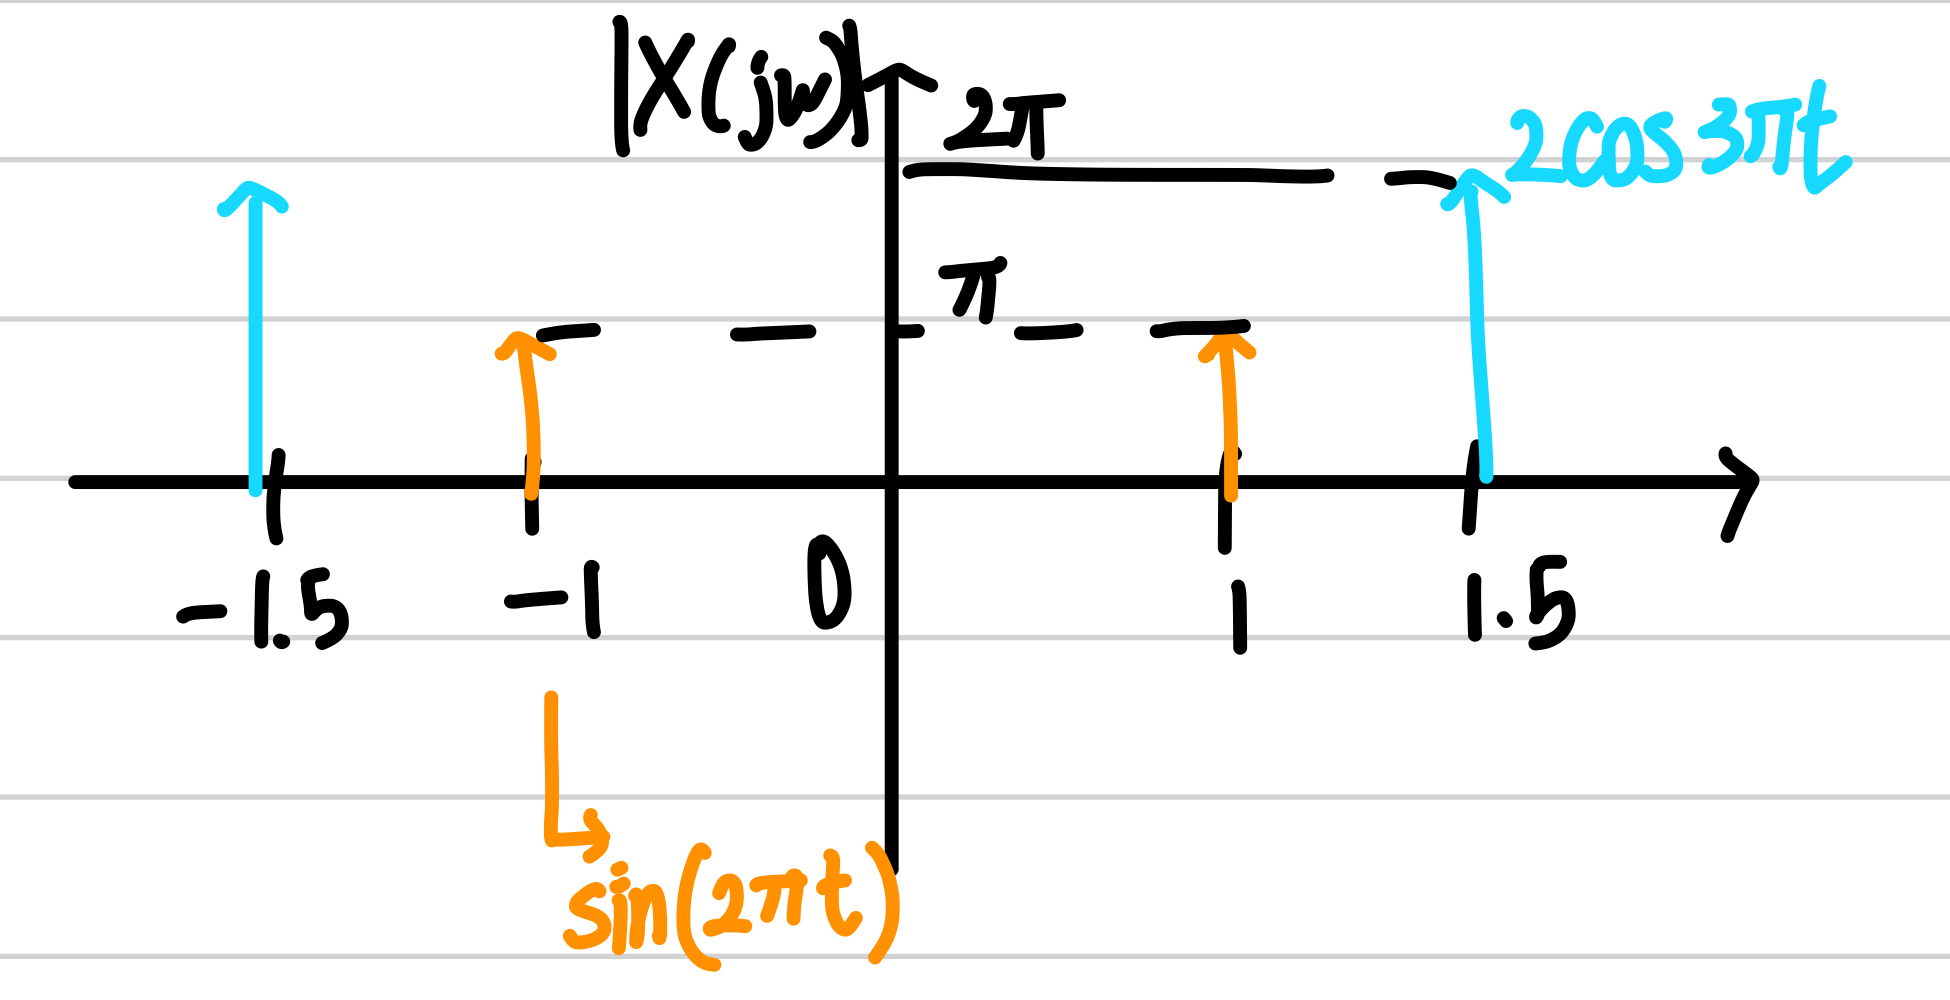 |X(jw)|
2π
2cos3πt
π
-1.5 -1 0 1 1.5
sin(2πt)